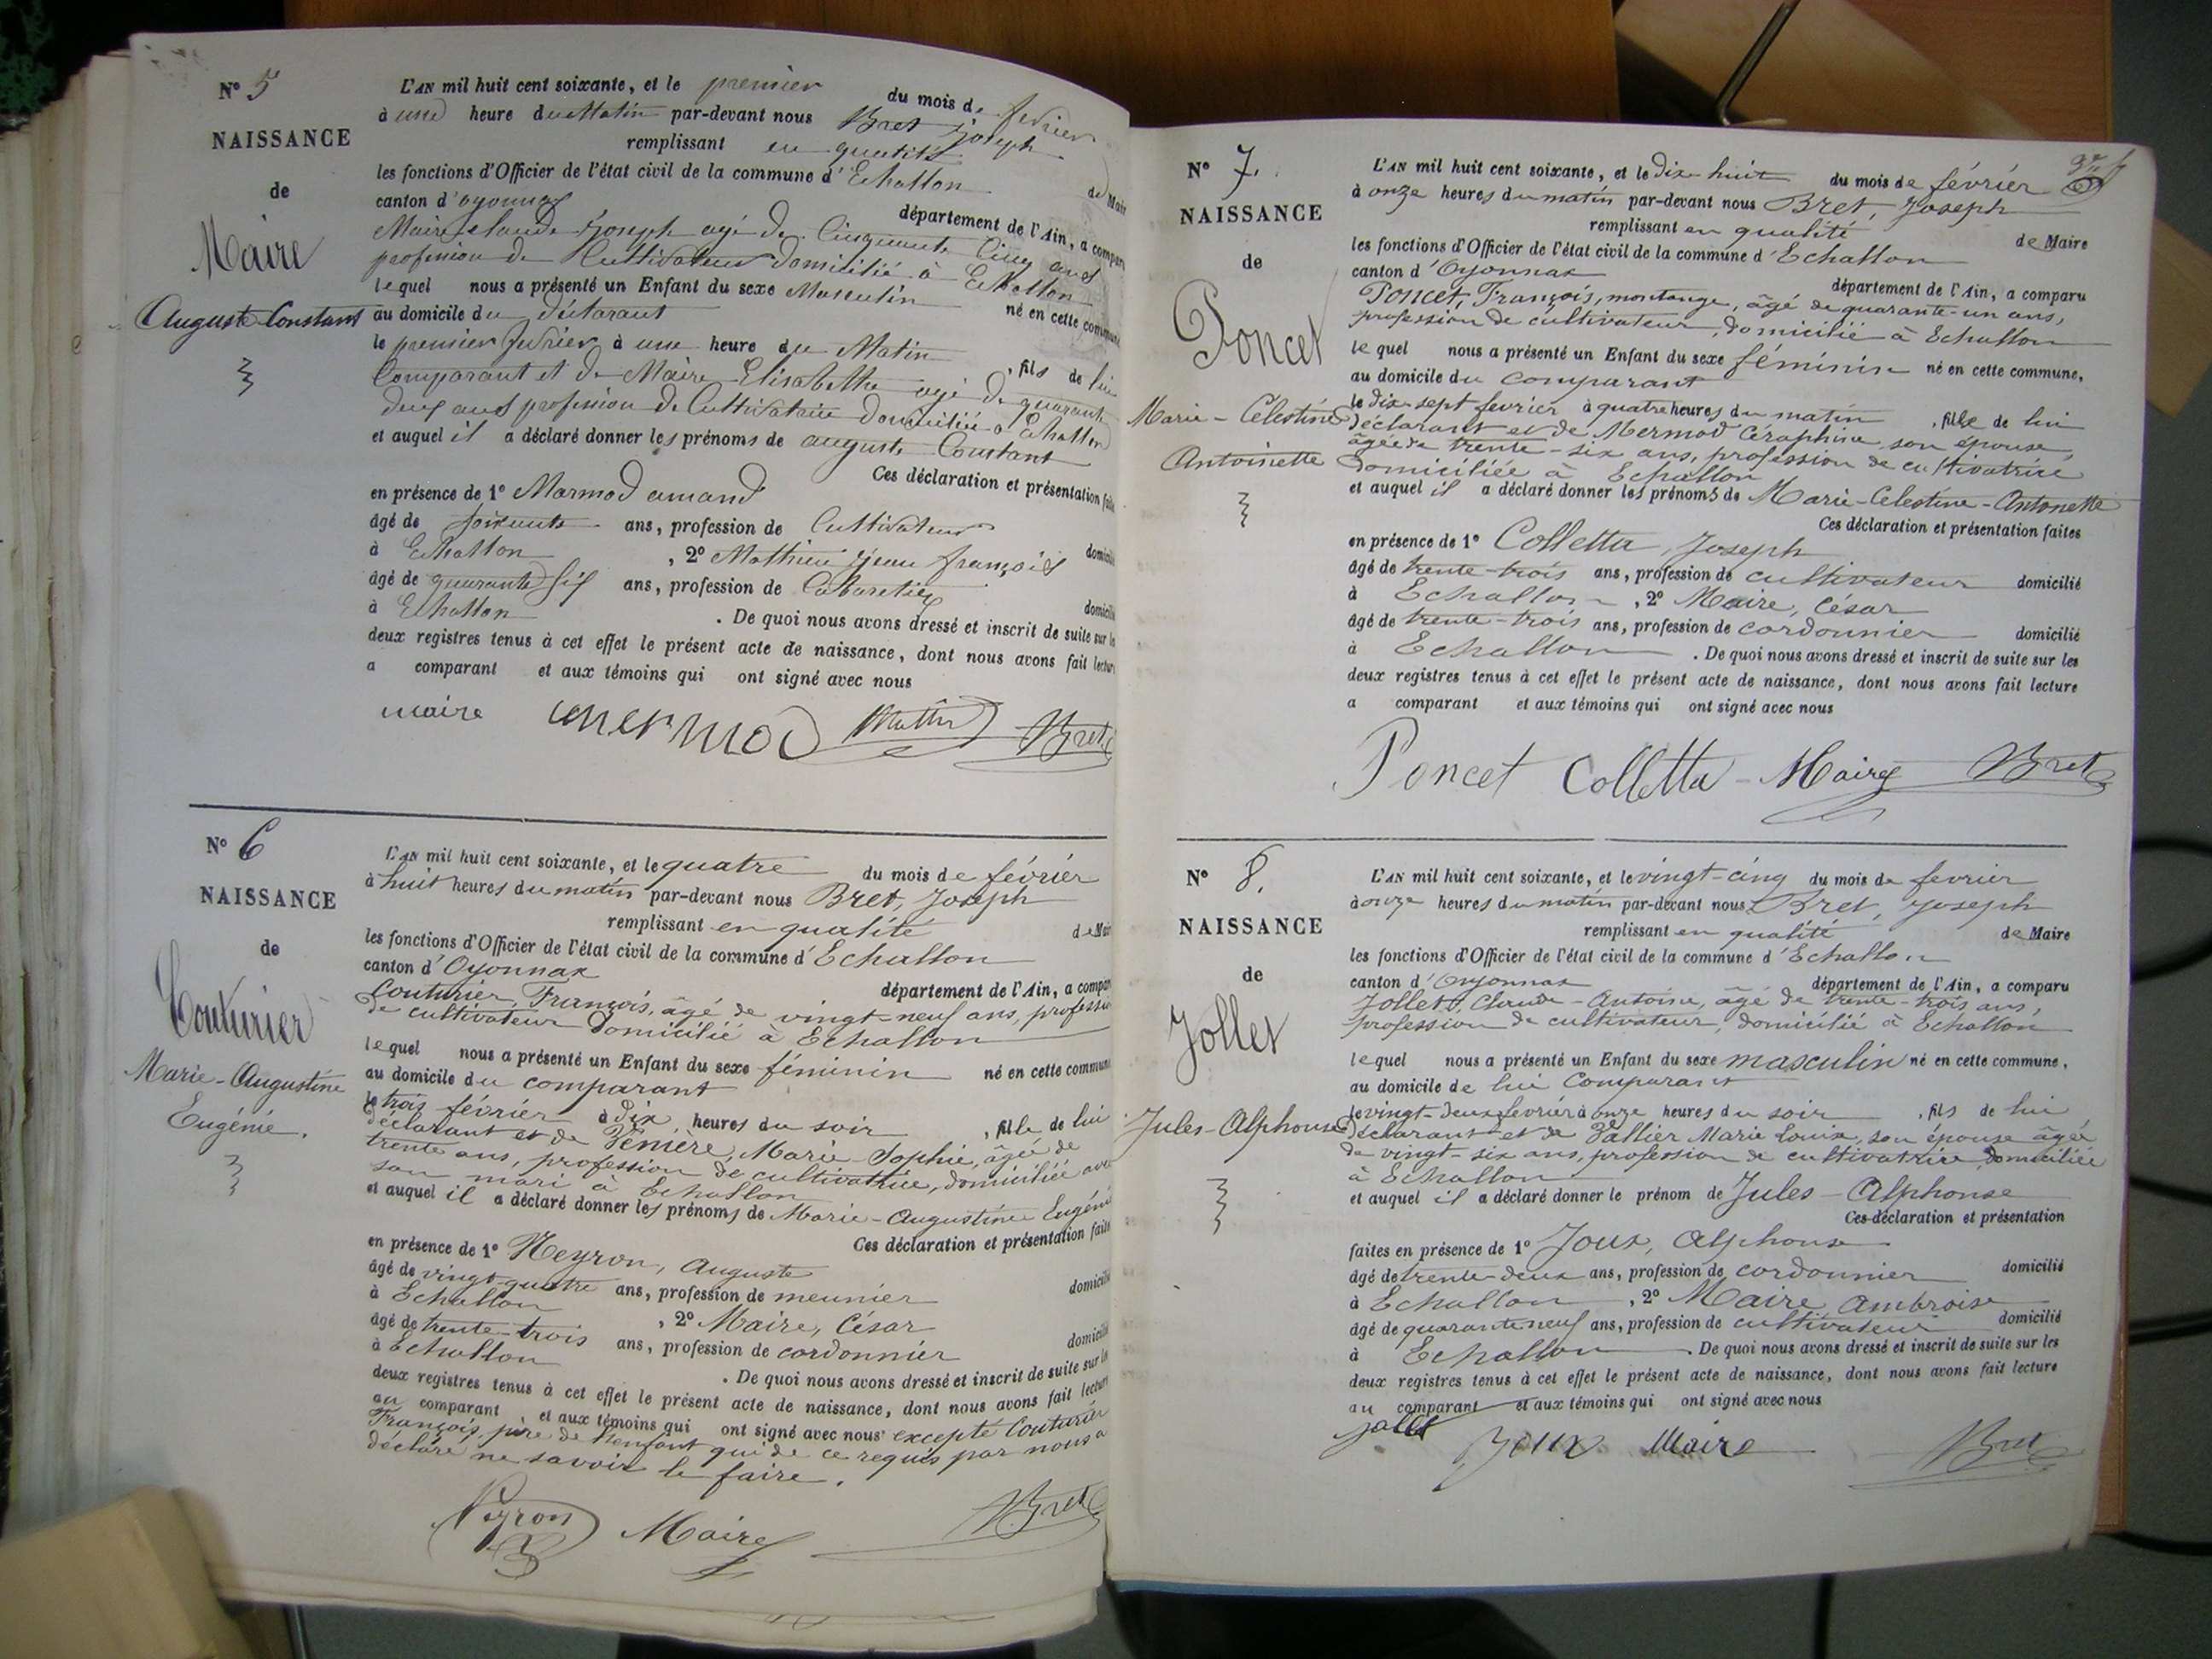 N° 5
NAISSANCE
de
Maire
Auguste Constant
L'AN mil huit cent soixante, et le premier du mois de février
à une heure du Matin par-devant nous Bret joseph
remplissant en qualité de Mair
les fonctions d'Officier de l'état civil de la commune d'Echallon
canton d'oyonnax département de l'Ain, a compar
Maire claude joseph agé de Cinquante Cinq ans
profession de Cultivateur domicilié à Echallon
lequel nous a présenté un Enfant du sexe Masculin né en cette commune
au domicile du déclarant
le premier fevrier à une heure du Matin , fils de lui
Comparant et de Maire Elisabethe agé de quarante
deux ans profession de Cultivatrice domiciliée à Echallon
et auquel il a déclaré donner les prénoms de auguste Constant
Ces déclaration et présentation faites
en présence de 1° Mermod amand
âgé de soixante ans, profession de Cultivateur
à Echallon , 2° Mathieu jean françois domicili
âgé de quarante six ans, profession de Cabaretier
à Echallon domicili
. De quoi nous avons dressé et inscrit de suite sur les
deux registres tenus à cet effet le présent acte de naissance, dont nous avons fait lecture
a comparant et aux témoins qui ont signé avec nous
maire mermod Mathieu Bret
N° 6
NAISSANCE
de
Couturier
Marie-Augustine
Eugénie.
L'AN mil huit cent soixante, et le quatre du mois de février
à huit heures du matin par-devant nous Bret, Joseph
remplissant en qualité de Mair
les fonctions d'Officier de l'état civil de la commune d'Echallon
canton d'Oyonnax département de l'Ain, a compar
Couturier, François, âgé de vingt-neuf ans, professio
de cultivateur domicilié à Echallon
lequel nous a présenté un Enfant du sexe féminin né en cette commune
au domicile du comparant
le trois février à dix heures du soir , fille de lui
déclarant et de Penière, Marie Sophie, âgée de
trente ans, profession de cultivatrice, domiciliée avec
son mari à Echallon
et auquel il a déclaré donner les prénoms de Marie-Augustine Eugénie
Ces déclaration et présentation faites
en présence de 1° Neyron, Auguste
âgé de vingt-quatre ans, profession de meunier domicilié
à Echallon , 2° Maire, César
âgé de trente-trois ans, profession de cordonnier domicilié
à Echallon . De quoi nous avons dressé et inscrit de suite sur les
deux registres tenus à cet effet le présent acte de naissance, dont nous avons fait lecture
au comparant , et aux témoins qui ont signé avec nous excepté Couturier
François, père de l'enfant qui de ce requis par nous a
déclaré ne savoir le faire.
Neyron Maire Bret
N° 7.
NAISSANCE
de
Poncet
Marie-Celestine
Antoinette
L'AN mil huit cent soixante, et le Dix-huit du mois de février
à onze heures du matin par-devant nous Bret, Joseph
remplissant en qualité de Maire
les fonctions d'Officier de l'état civil de la commune d'Echallon
canton d'Oyonnax département de l'Ain, a comparu
Poncet, François, montange, âgé de quarante-un ans,
profession de cultivateur, domicilié à Echallon
lequel nous a présenté un Enfant du sexe féminin né en cette commune,
au domicile du comparant
le dix-sept fevrier à quatre heures du matin , fille de lui
déclarant et de Mermod Céraphine son épouse,
âgée de trente-six ans, profession de cultivatrice
domiciliée à Echallon
et auquel il a déclaré donner les prénoms de Marie-Celestine-Antonette
Ces déclaration et présentation faites
en présence de 1° Colletta, Joseph
âgé de trente-trois ans, profession de cultivateur domicilié
à Echallon , 2° Maire, César
âgé de trente-trois ans, profession de cordonnier domicilié
à Echallon . De quoi nous avons dressé et inscrit de suite sur les
deux registres tenus à cet effet le présent acte de naissance, dont nous avons fait lecture
a comparant et aux témoins qui ont signé avec nous
Poncet Colletta Maire Bret
N° 8.
NAISSANCE
de
Jollet
Jules-Alphonse
L'AN mil huit cent soixante, et le vingt-cinq du mois de fevrier
à onze heures du matin par-devant nous Bret, Joseph
remplissant en qualité de Maire
les fonctions d'Officier de l'état civil de la commune d'Echallon
canton d'Oyonnax département de l'Ain, a comparu
Jollet, Claude-Antoine, âgé de trente-trois ans,
profession de cultivateur, domicilié à Echallon
lequel nous a présenté un Enfant du sexe masculin né en cette commune,
au domicile de lui Comparant
le vingt-deux fevrier à onze heures du soir , fils de lui
déclarant et de Vallier Marie Louise, son épouse âgée
de vingt-six ans, profession de cultivatrice domiciliée
à Echallon
et auquel il a déclaré donner le prénom de Jules-Alphonse
Ces déclaration et présentation
faites en présence de 1° Joux, Alphonse
âgé de trente-deux ans, profession de cordonnier domicilié
à Echallon , 2° Maire Ambroise
âgé de quarante neuf ans, profession de cultivateur domicilié
à Echallon . De quoi nous avons dressé et inscrit de suite sur les
deux registres tenus à cet effet le présent acte de naissance, dont nous avons fait lecture
au comparant et aux témoins qui ont signé avec nous
jollet Joux Maire Bret